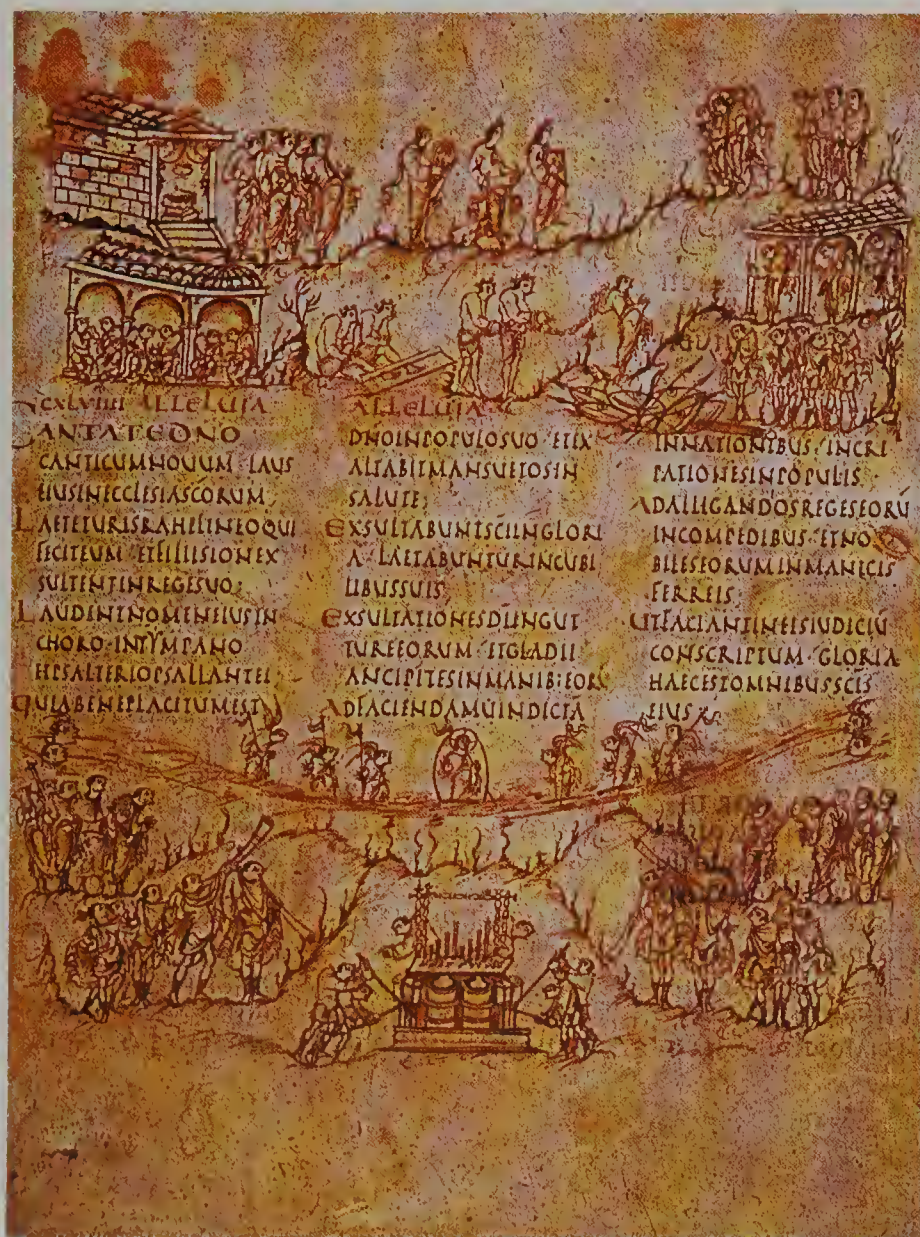 CXLVIIII ALLELUIA
CANTATEDNO
CANTICUMNOUUM·LAUS
EIUSINECCLESIASCORUM;
LAETETURISRAHELINEOQUI
FECITEUM·ETFILIISIONEX
SULTENTINREGESUO;
LAUDENTNOMENEIUSIN
CHORO·INTYMPANO
ETPSALTERIOPSALLANTEI
QUIABENEPLACITUMEST
ALLELUIA
DNOINPOPULOSUO·ETEX
ALTABITMANSUETOSIN
SALUTE;
EXSULTABUNTSCIINGLORI
A·LAETABUNTURINCUBI
LIBUSSUIS
EXSULTATIONESDIINGUT
TUREEORUM·ETGLADII
ANCIPITESINMANIB:EORU
ADFACIENDAMUINDICTA
INNATIONIBUS·INCRI
PATIONESINPOPULIS
ADALLIGANDOSREGESEORU
INCOMPEDIBUS·ETNO
BILESEORUMINMANICIS
FERREIS
UTFACIANTINEISIUDICIU
CONSCRIPTUM·GLORIA
HAECESTOMNIBUSSCIS
EIUS